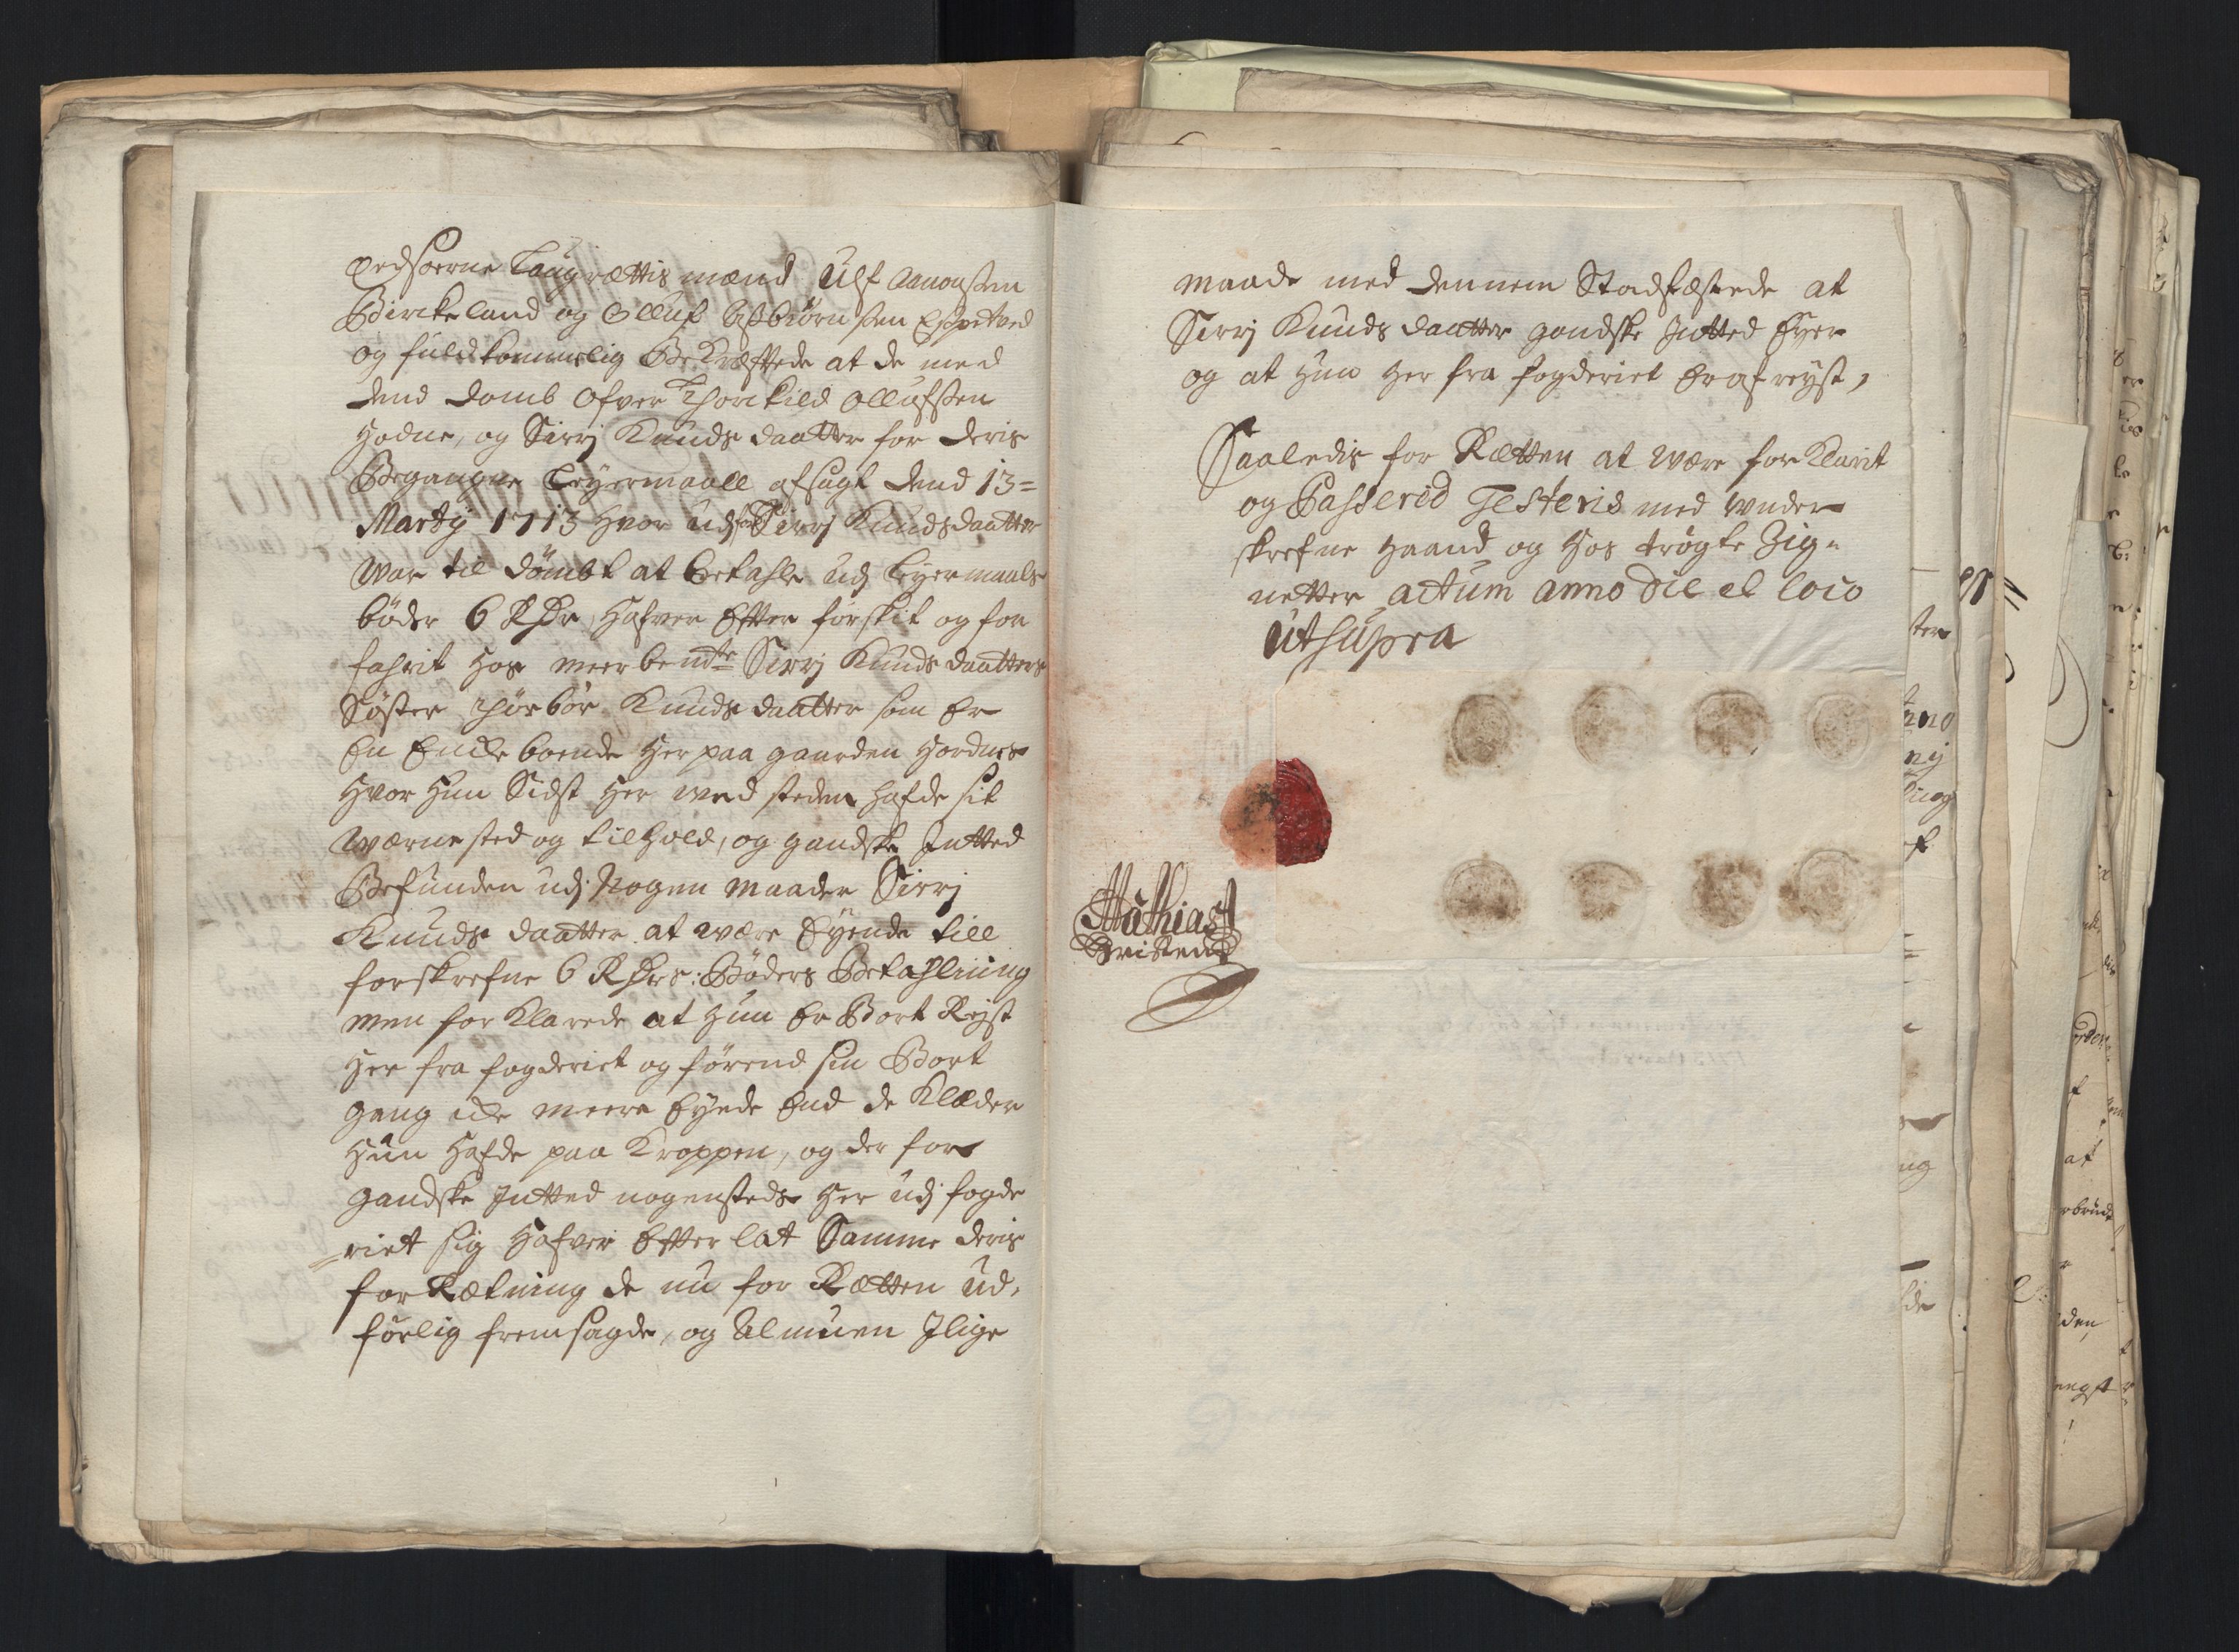 Edsoerne Laugrættis mænd Ulf Aanonsen
Birckeland og Olluf Asbiørnsen Espetved
og fuldkommelig Bekræftede at de med
dend domb ofver Thorckild Ollufsen
Hodne, og Sirrj Knuds daatter for deris
Begangne Leyermaall afsagt dend 13=
Marty 1713 hvor udj Sirrj Knudsdaatter
war til dömbt at betahle udj Leyermaals
böder 6 Rdr, hafver Efter forskit og for
fahrit hos meerbemte Sirrj Knudsdaatters
Søster Thorbor Knudsdaatter som Er
En Encke boende her paa gaarden Hordnes
hvor hun Sidst her ved steden hafde sit
wærrested og tilhold, og gandske Intted
Befunden udj Nogen maader Sirrj
Knuds daatter at være Eyende till
forskrefne 6 Rdrs: Böders Betahlning
men forklarede at hun Er Bort Reyst
her fra fogderiet og førend sin Bort
gang icke meere Eyede End de Klæder
hun hafde paa Kroppen, og der for
gandske Intted nogensteds her udj fogde
riet sig hafver Efterlat Samme deris
for Rætning de nu for Rætten ud,
førlig fremsagde, og Almuen Jlige
maade med dennem Stadfæstede at
Sirrj Knuds daatter gandske Intted Eyer
og at hun her fra fogderiet Er af reyst,
Saaledis for Rætten at være forklarit
og Passerid Testeris med under
skrefne haand og hos trøgte Zig=
netter actum anno die et loco
utsupra
Mathias
Cristens